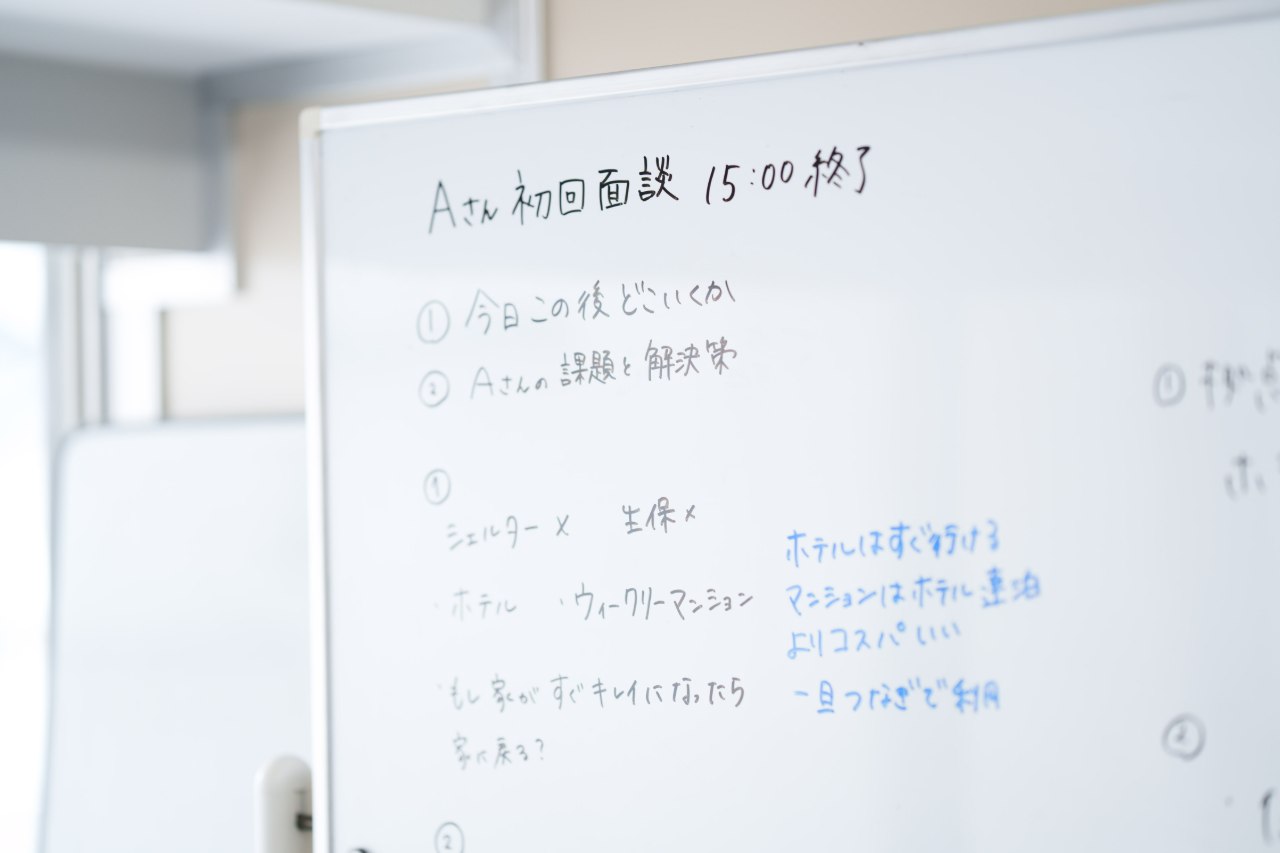 Aさん 初回面談 15:00 終了
① 今日この後どこいくか
② Aさんの課題と解決策
①
シェルター × 生保 ×
・ホテル ・ウィークリーマンション
・もし家がすぐキレイになったら
家に戻る?
ホテルはすぐ行ける
マンションはホテル連泊
よりコスパいい
一旦つなぎで利用
②
①
②